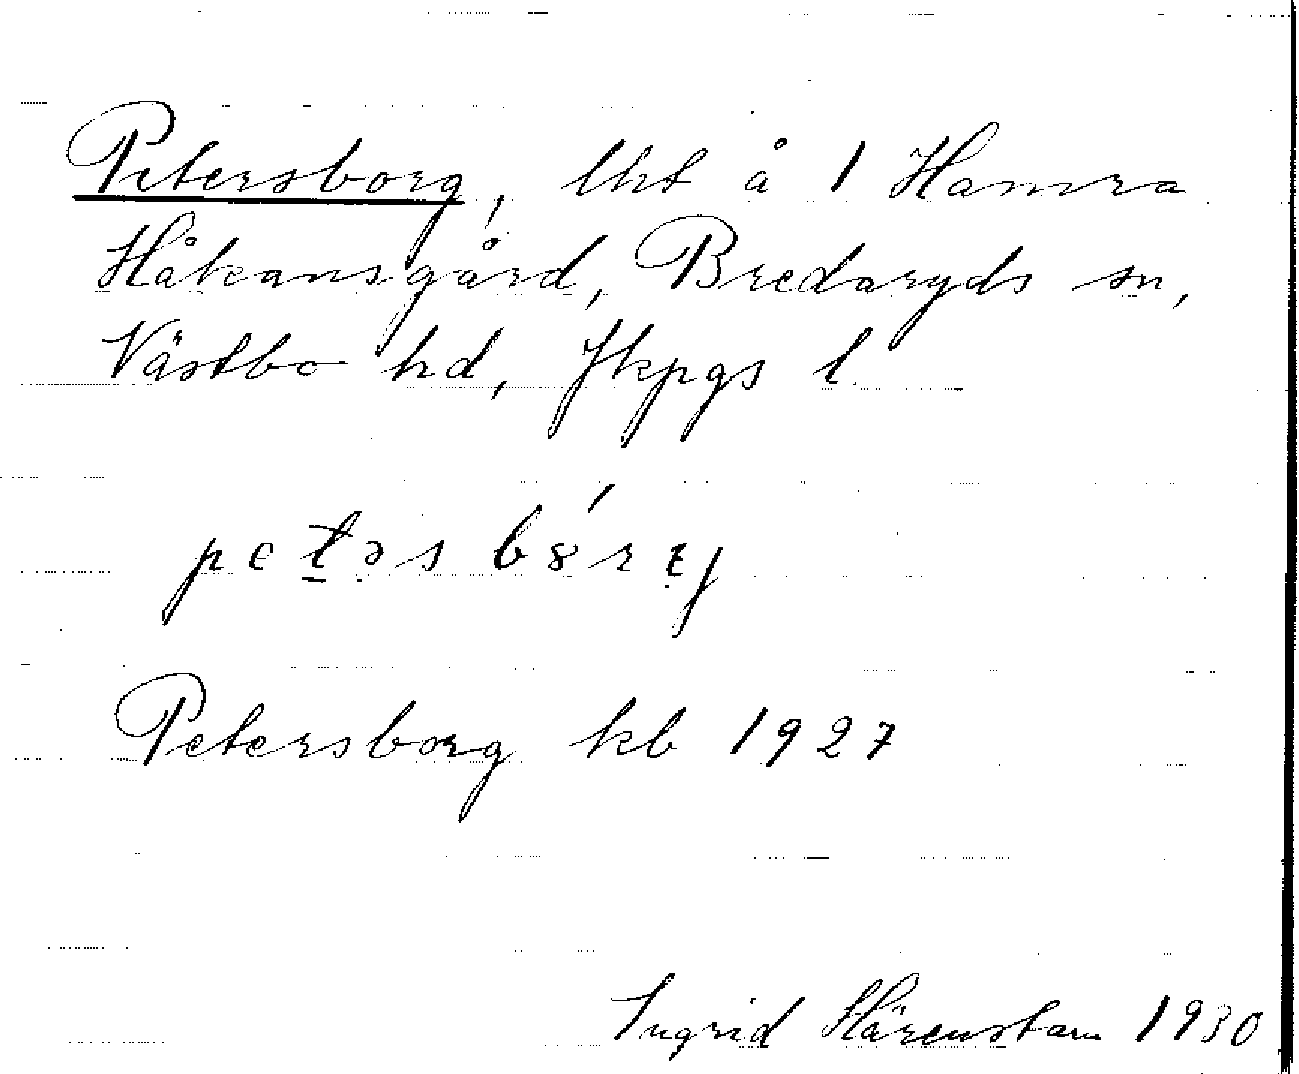 Petersborg, lht å 1 Hamra
Håkansgård, Bredaryds sn,
Västbo hd, Jkpgs l
Petersborg kb 1927
Ingrid Härenstam 1930